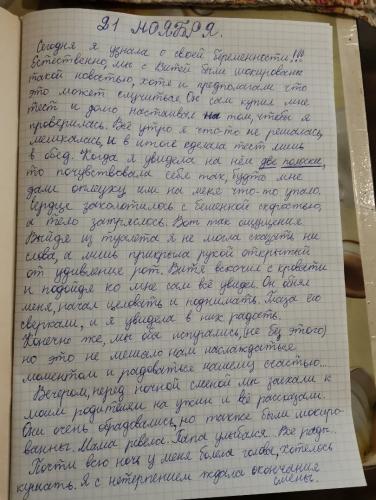 21 НОЯБРЯ.
Сегодня я узнала о своей беременности!!!
Естественно, мы с Витей были шокированы
такой новостью, хотя и предполагали что
это может случиться. Он сам купил мне
тест и долго настаивал на том, чтобы я
проверилась. Всё утро я что-то не решалась,
мешкалась, и в итоге сделала тест лишь
в обед. Когда я увидела на нём две полоски,
то почувствовала себя так, будто мне
дали оплеуху или на меня что-то упало.
Сердце заколотилось с бешенной скоростью,
а тело затряслось. Вот так ощущения.
Выйдя из туалета я не могла сказать ни
слова, а лишь прикрыла рукой открытый
от удивление рот. Витя вскочил с кровати
и подойдя ко мне сам всё увидел. Он обнял
меня, начал целовать и поднимать. Глаза его
сверкали, и я увидела в них радость.
Конечно же, мы оба испугались (не без этого)
но это не мешало нам наслаждаться
моментом и радоваться нашему счастью...
Вечером, перед ночной сменой мы заехали к
моим родителям на ужин и всё рассказали.
Они очень обрадовались, но также были шокиро-
ванны. Мама ревела. Папа улыбался... Все рады.
Почти всю ночь у меня болела голова, хотелось
кушать. Я с нетерпением ждала окончания
смены.